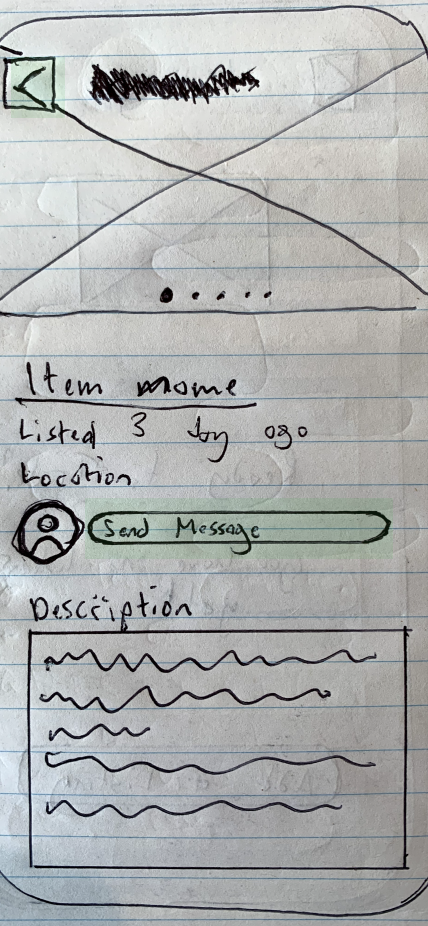 Item name
Listed 3 day ago
Location
Send Message
Description